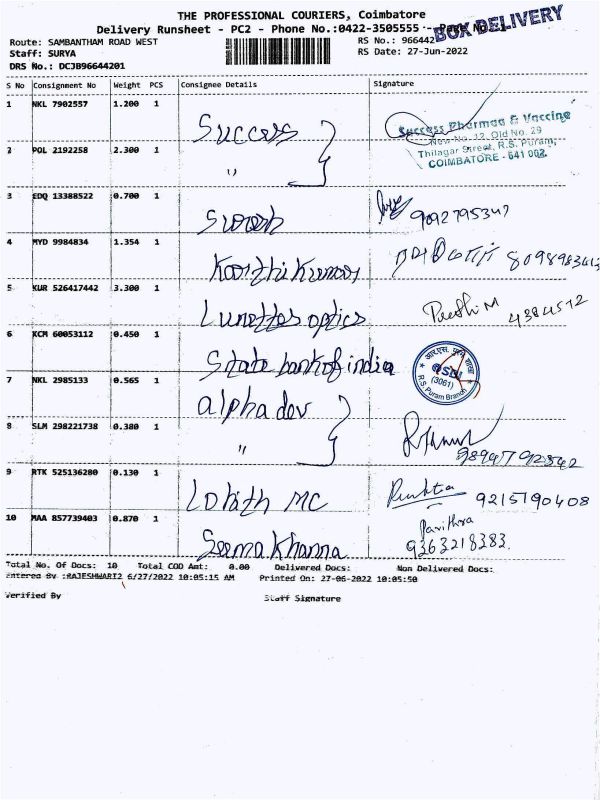 THE PROFESSIONAL COURIERS, Coimbatore
Delivery Runsheet - PC2 - Phone No.:0422-3505555
BOX DELIVERY
Route: SAMBANTHAM ROAD WEST
RS No.: 966442
Staff: SURYA
RS Date: 27-Jun-2022
DRS No.: DCJB96644201
S No Consignment No Weight PCS Consignee Details Signature
1 NKL 7902557 1.200 1 Success
Success Pharmaa & Vaccine
New No. 12, Old No. 29
Thilagar Street, R.S. Puram,
COIMBATORE - 641 002.
2 POL 2192258 2.300 1 "
3 EDQ 13388522 0.700 1 Suresh 9092795347
4 MYD 9984834 1.354 1 Karthi Kumar 8098983413
5 KUR 526417442 3.300 1 Lunettes optics Preethi M 4384512
6 KCM 60053112 0.450 1 State bank of india
आर.एस. पुरम शाखा
SBI
(3061)
R.S. Puram Branch
7 NKL 2985133 0.565 1 alpha dev
8 SLM 298221738 0.380 1 "
9 RTK 525136280 0.130 1 Lohith MC 9215190408
10 MAA 857739403 0.870 1 Seema Khanna Pavithra
9363218383.
Total No. Of Docs: 10 Total COD Amt: 0.00 Delivered Docs: Non Delivered Docs:
Entered By :RAJESHWARI2 6/27/2022 10:05:15 AM Printed On: 27-06-2022 10:05:50
Verified By Staff Signature